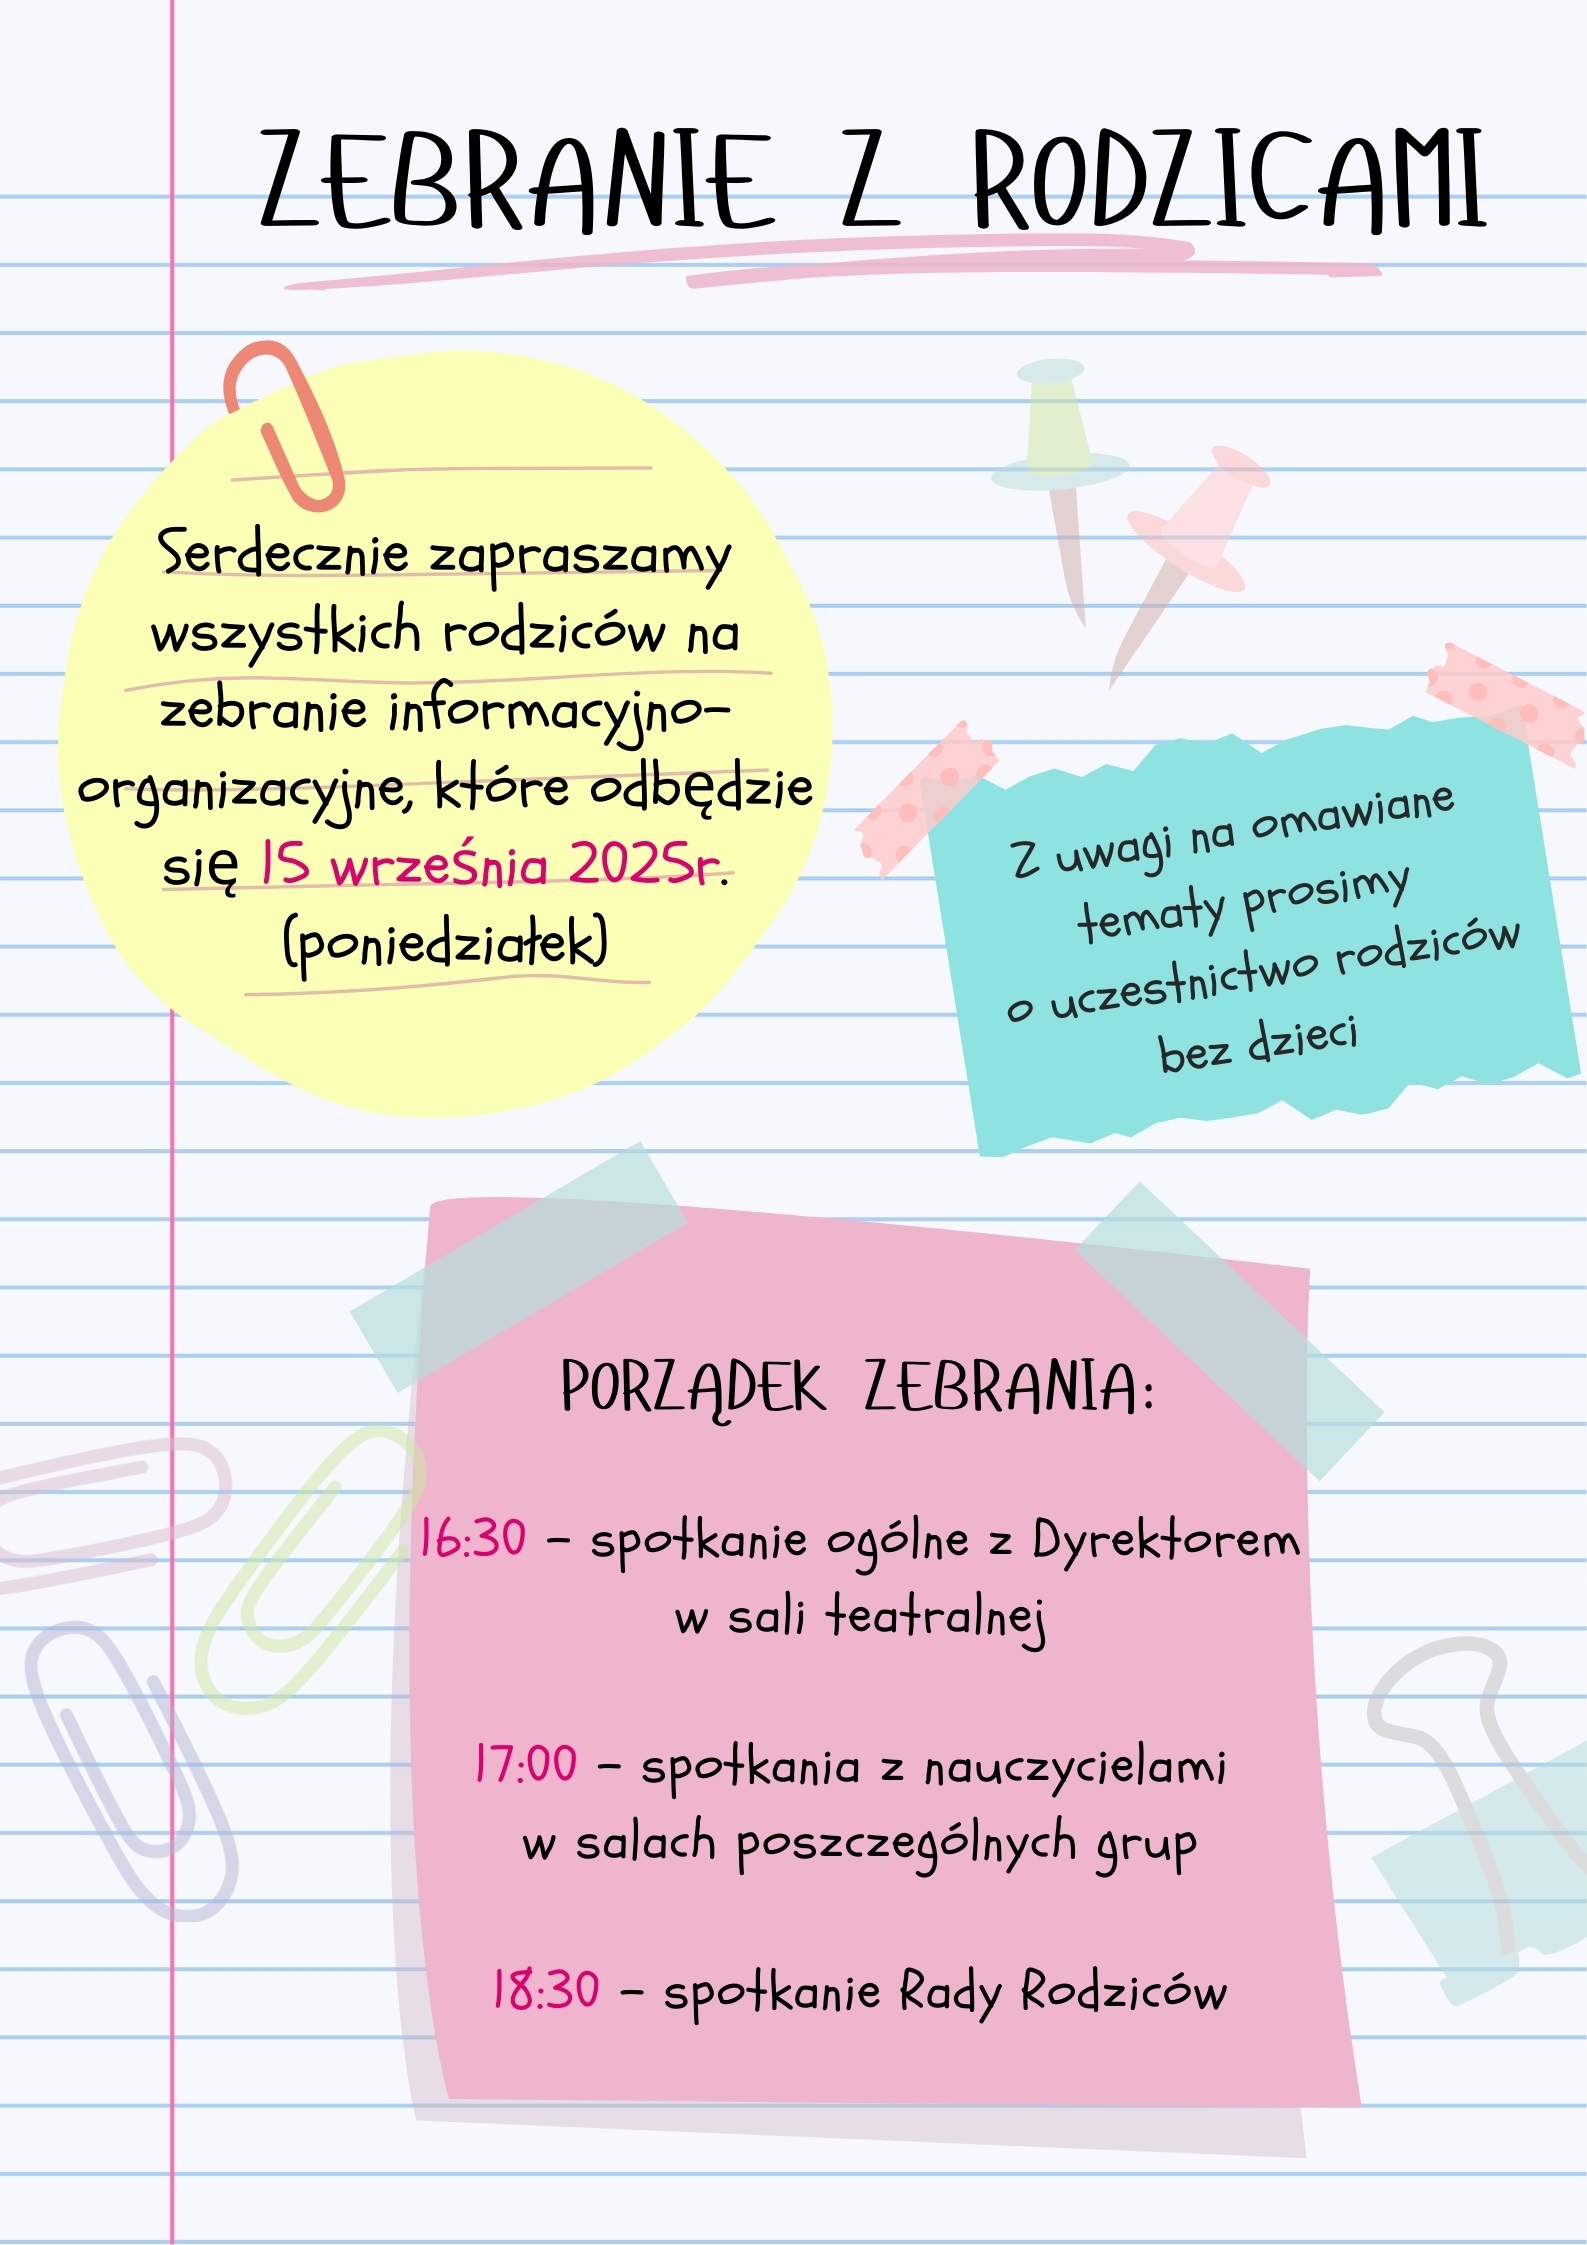 ZEBRANIE Z RODZICAMI
Serdecznie zapraszamy
wszystkich rodziców na
zebranie informacyjno-
organizacyjne, które odbędzie
się 15 września 2025r.
(poniedziałek)
Z uwagi na omawiane
tematy prosimy
o uczestnictwo rodziców
bez dzieci
PORZĄDEK ZEBRANIA:
16:30 - spotkanie ogólne z Dyrektorem
w sali teatralnej
17:00 - spotkania z nauczycielami
w salach poszczególnych grup
18:30 - spotkanie Rady Rodziców